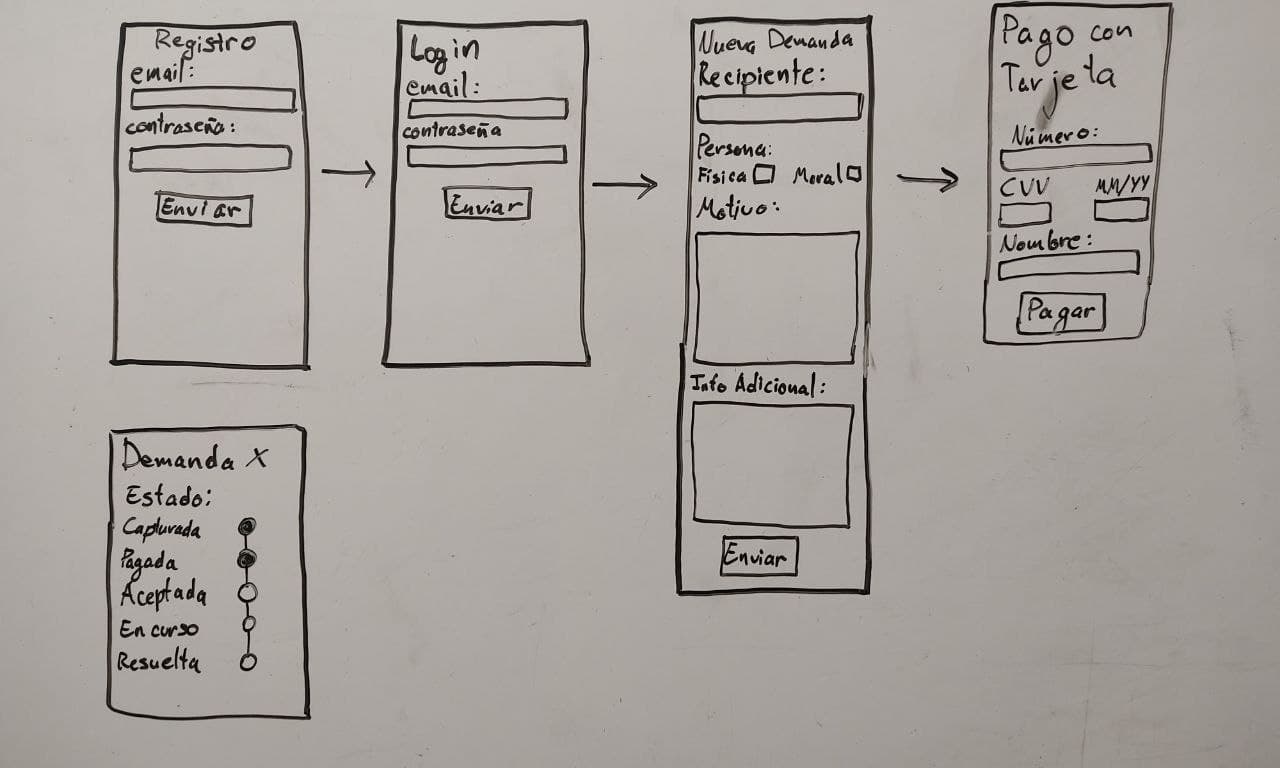 Registro
email:
contraseña:
Enviar
Login
email:
contraseña
Enviar
Nueva Demanda
Recipiente:
Persona:
Física Moral
Motivo:
Info Adicional:
Enviar
Pago con
Tarjeta
Número:
CVV MM/YY
Nombre:
Pagar
Demanda X
Estado:
Capturada
Pagada
Aceptada
En curso
Resuelta